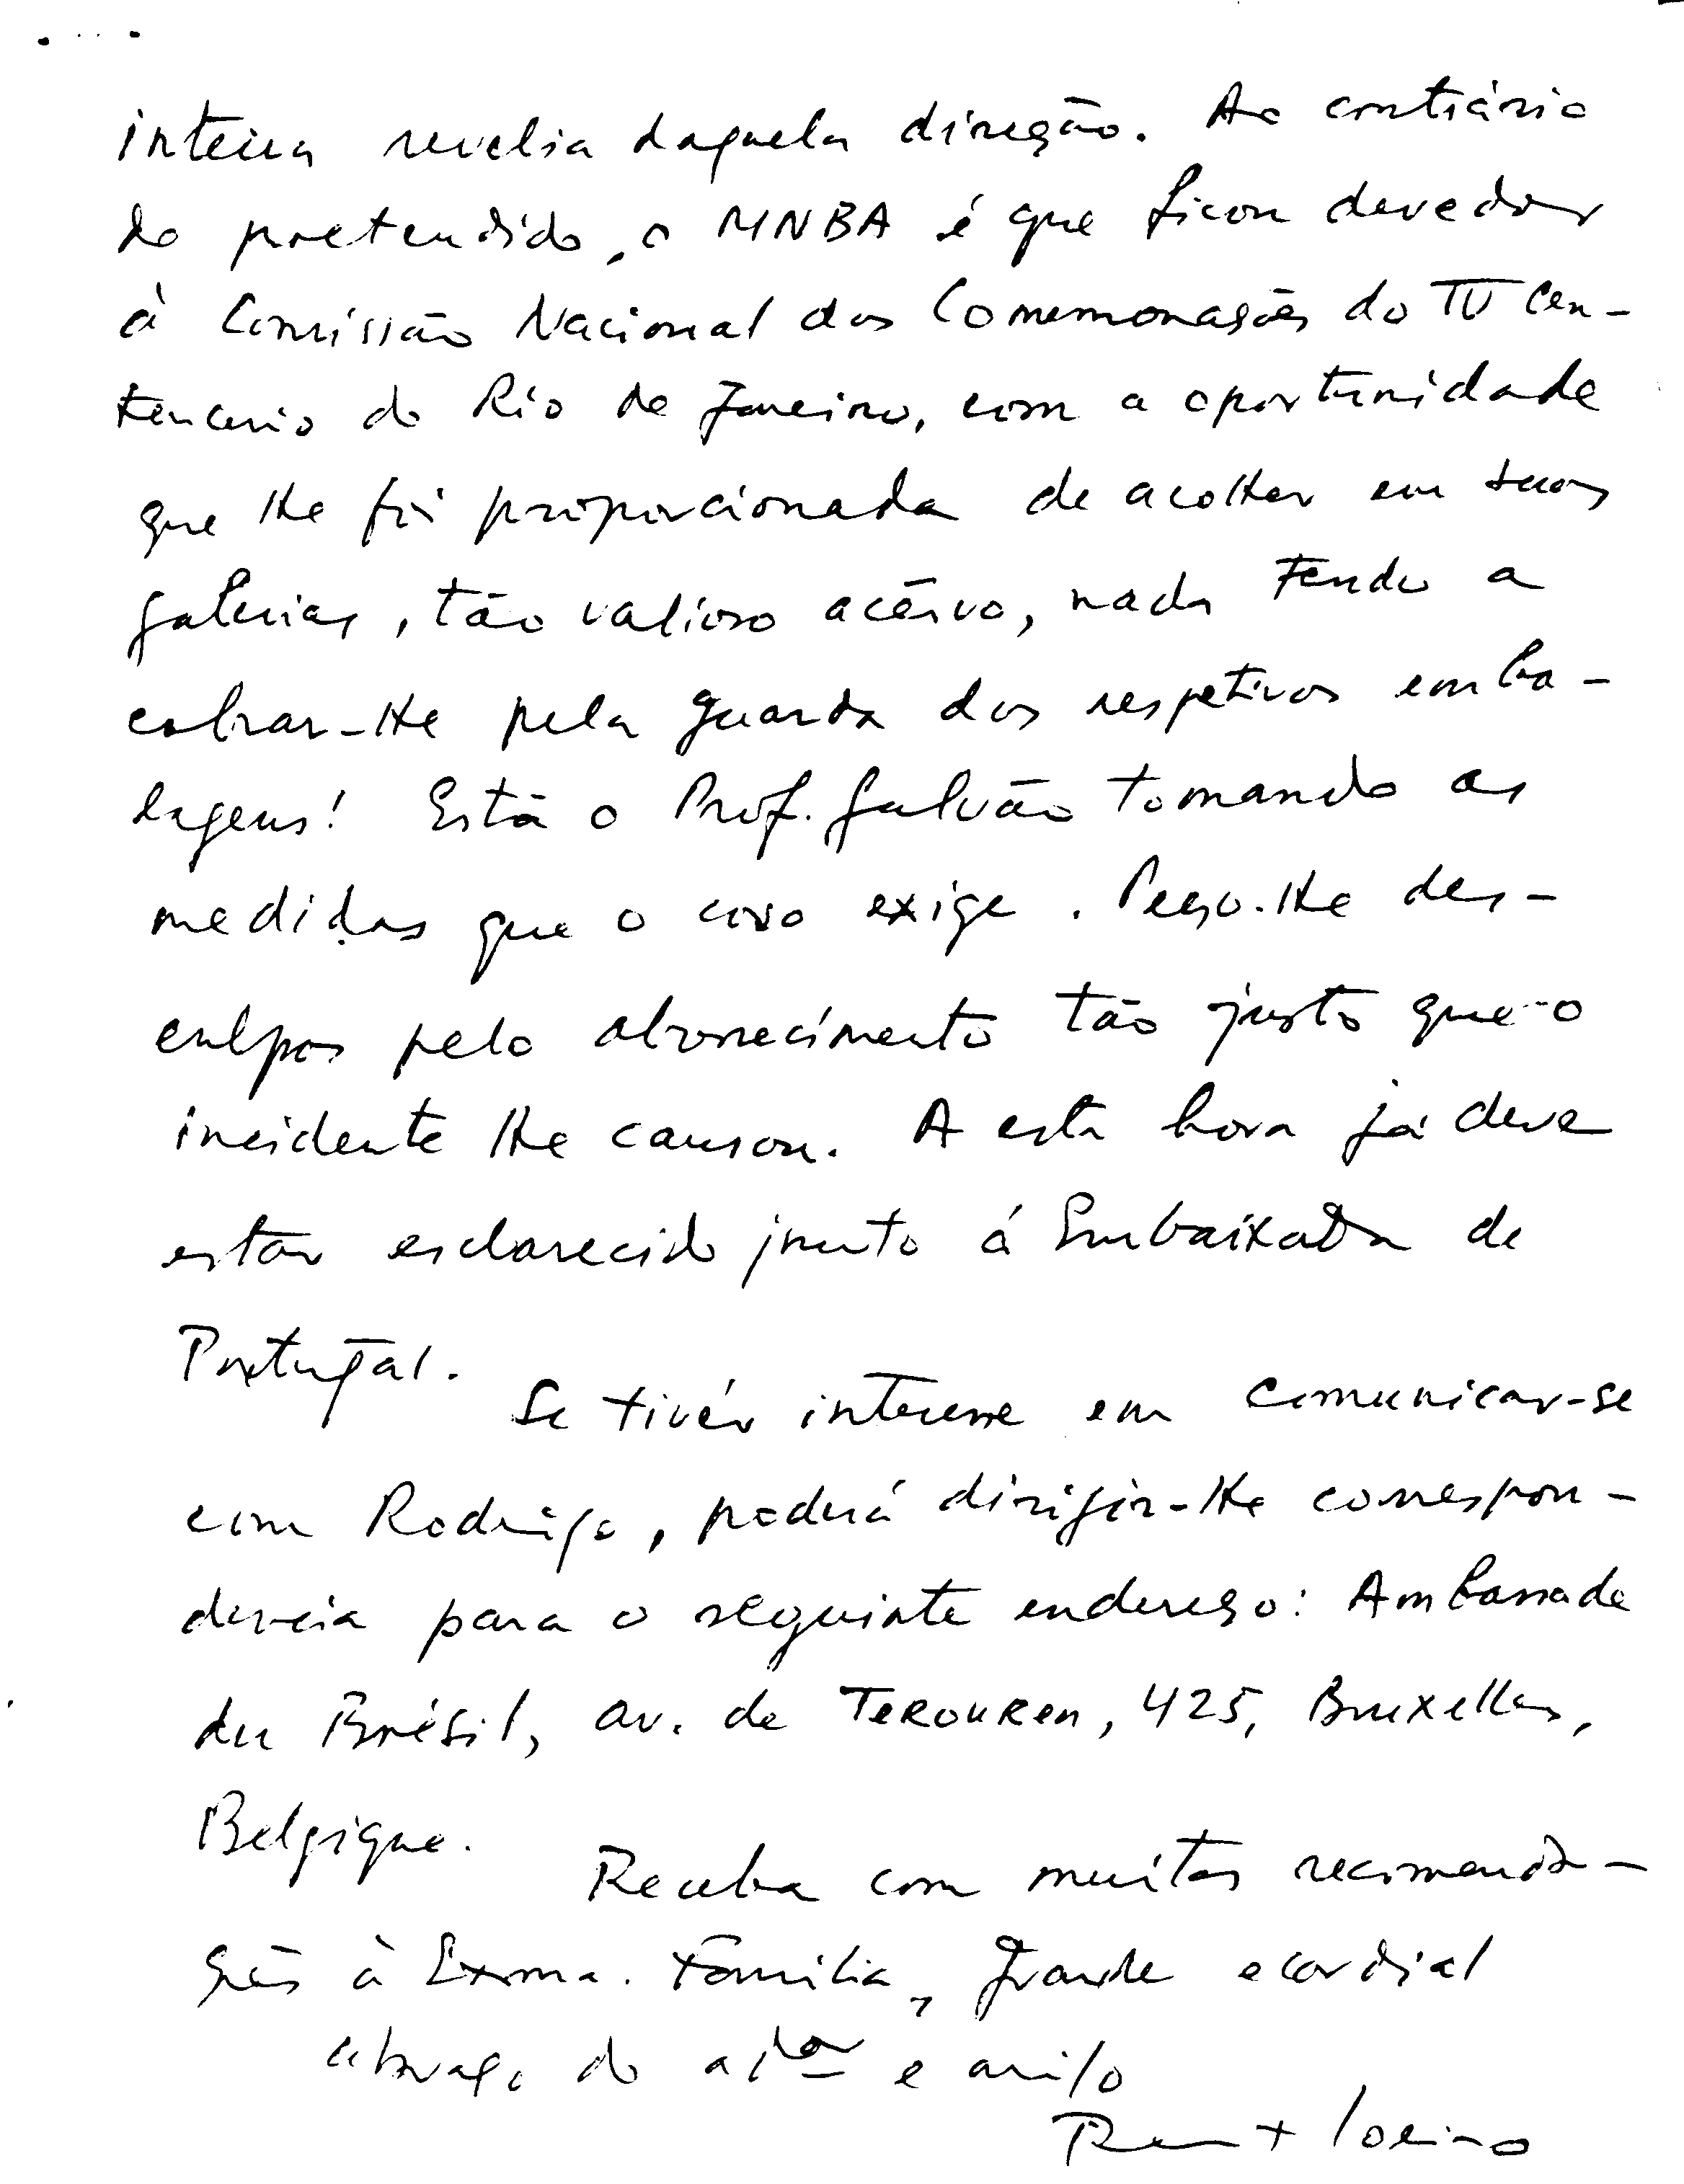 inteira revelia daquela direção. Ao contrário
do pretendido, o MNBA é que ficou devedor
à Comissão Nacional das Comemorações do IV Cen-
tenário do Rio de Janeiro, com a oportunidade
que lhe foi proporcionada de acolher em suas
galerias, tão valioso acêrvo, nada tendo a
cobrar-lhe pela guarda das respetivas emba-
lagens! Está o Prof. Galvão tomando as
medidas que o caso exige. Peço-lhe des-
culpas pelo aborrecimento tão justo que o
incidente lhe causou. A esta hora já deve
estar esclarecido junto á Embaixada de
Portugal.
Se tivér interesse em comunicar-se
com Rodrigo, poderá dirigir-lhe correspon-
dencia para o seguinte endereço: Ambassade
du Brésil, av. de TEROUREN, 425, Bruxelles,
Belgique.
Receba com muitas recomenda-
ções à Exma. Família, grande e cordial
abraço do a/dor e amigo